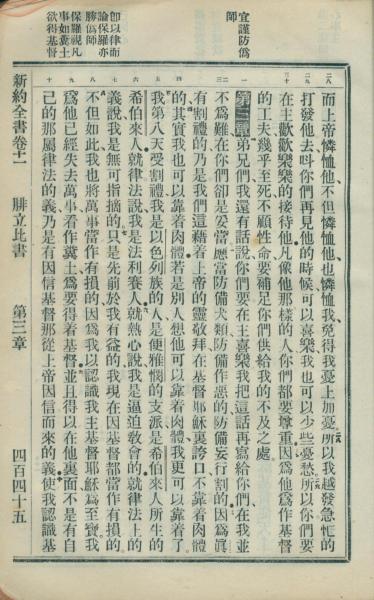 宜謹防偽
師
卽以律而
論保羅亦
勝偽師
保羅視凡
事如糞土
欲得基督
二八
二九
三十
一
二
三
四
五
六
七
八
九
十
而上帝憐恤他不但憐恤他也憐恤我免得我憂上加憂所以我越發急忙的
打發他去呌你們再見他的時候可以喜樂我也可以少些憂愁所以你們要
在主歡歡樂樂的接待他凡像他那樣的人你們都要尊重因爲他爲作基督
的工夫幾乎至死不顧性命要補足你們供給我的不及之處
第三章弟兄們我還有話說你們要在主喜樂我把這話再寫給你們在我並
不爲難在你們卻是妥當應當防備犬類防備作惡的防備妄行割的因爲眞
有割禮的乃是我們這藉着上帝的靈敬拜在基督耶穌裏誇口不靠着肉體
的其實我也可以靠着肉體若是別人想他可以靠着肉體我更可以靠着了
我第八天受割禮我是以色列族的人是便雅憫的支派是希伯來人所生的
希伯來人就律法說我是法利賽人就熱心說我是逼迫敎會的就律法上的
義說我是無可指摘的只是先前於我有益的我現在因基督都當作有損的
不但如此我也將萬事當作有損的因爲我以認識我主基督耶穌爲至寶我
爲他已經失去萬事看作糞土爲要得着基督並且得以在他裏面不是有自
己的那屬律法的義乃是有因信基督那從上帝因信而來的義使我認識基
新約全書卷十一　腓立比書　第三章　四百四十五